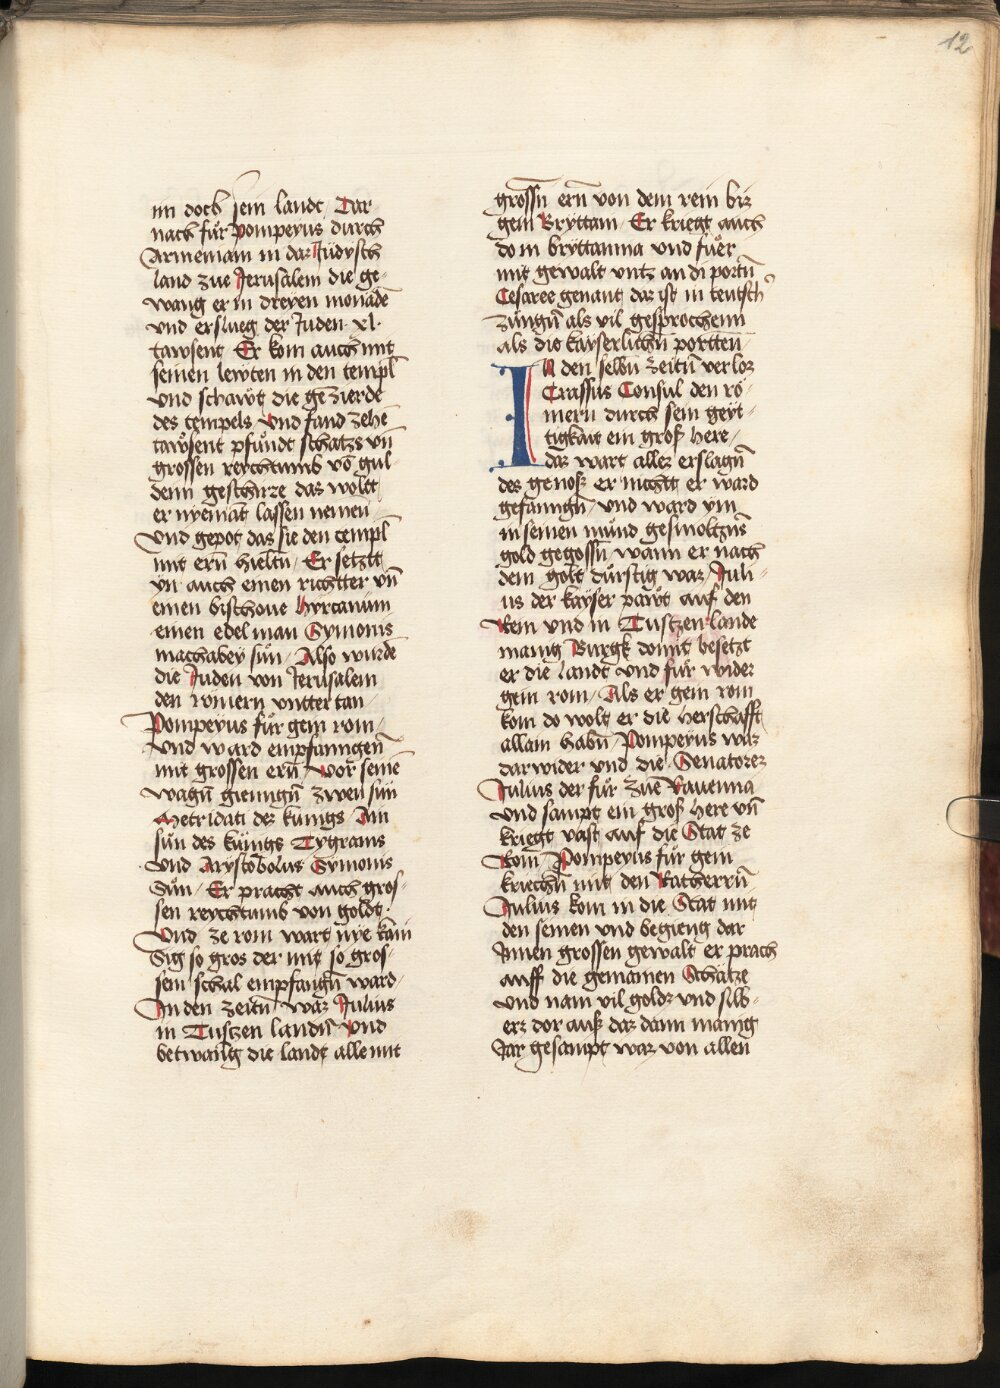 12
im doch sein landt / Dar
nach fuͤr pompeyus durch
Armeniam in daz Judysch
land zue Jerusalem die ge-
wang er in dreyen monadē
vnd ersluег der Juden · xl ·
tawsent Er kom auch mit
seinen lewten in den templ
vnd schawt die gezierde
des tempels vnd fand zehē
tawsent pfuͤndt schatzs vn̄
grossen reychtumb vō gul-
denn geschirze das wolt
er nyemāt lassen nemen
Vnd gepot das sie den templ
mit ern̄ hieltn̄ / Er setzt
yn auch einen richtter vn̄
einen bischoue hyrcanum
einen edel man Symonis
machabey sun / Also wurdē
die Juden von Jerusalem
den romern vntter tan /
Pompeyus fuͤr gein rom /
Vnd ward empfanngen
mit grossen ern̄ / vor seinē
wagn̄ gienngn̄ zwen sun
Metridati dez kunigs Ain
sun des kunigs Tygranis
Vnd Arystobolus Symonis
Sun / Er pracht auch gros-
sen reychtumb von goldt ·
Vnd ze rom wart nye kain
Sig so gros der mit so gros-
sem schal empfangn̄ ward /
In den zeitn̄ waz Julius
in Tuschzen landn̄ Vnd
betwanng die landt alle mit
grossn̄ ern̄ von dem rein biz
gein Bryttani / Er kriegt auch
do in bryttanna vnd fuͤer
mit gewalt vntz an di portn̄
Cesaree genant daz ist in teutsch
zungn̄ als vil gesprochenn
als die kayserlichn̄ portten
IN den selbn̄ zeitn̄ verloz
Crassus Consul den ro-
mern durch sein geyt-
tigkait ein groß here /
daz wart allez erslagn̄
des genoß er nichtt er ward
gefanngn̄ / vnd ward ym
in seinen mund gesmoltzns
gold gegossn̄ wann er nach
dem golt duͤrstig waz / Juli-
us der kayser pawt auf den
Rein vnd in Tuschzen lande
manig Burgk domit besetzt
er die landt vnd fuͤr wider
gein rom / Als er gein rom
kom do wolt er die herschafft
allain habn̄ / Pompeyus waz
darwider vnd die Senatorez
Julius der fuͤr zuē Rauenna
vnd sampt ein groß here vn̄
kriegt vast auf die Stat ze
Rom / Pompeyus fuͤr gein
kriechn̄ mit den Ratherrn̄
Julius kom in die Stat mit
den seinen vnd begieng dar
Innen grossen gewalt er prach
auff die gemainen Schätze
vnd nam vil goldz vnd silb-
erz dor auß daz dann manig
Jar gesampt waz von allen